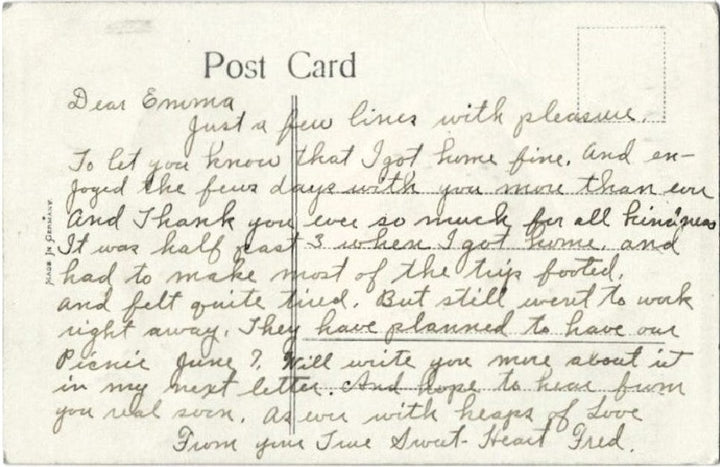 Post Card
Dear Emma
Just a few lines with pleasure.
To let you know that I got home fine. And en-
joyed the few days with you more than ever
And Thank you ever so much for all kindness
It was half past 3 when I got home. and
had to make most of the trip footed.
and felt quite tired. But still went to work
right away. They have planned to have our
Picnic June 7. Will write you more about it
in my next letter. And hope to hear from
you real soon. As ever with heaps of Love
From your True Sweet-Heart Fred.
MADE IN GERMANY